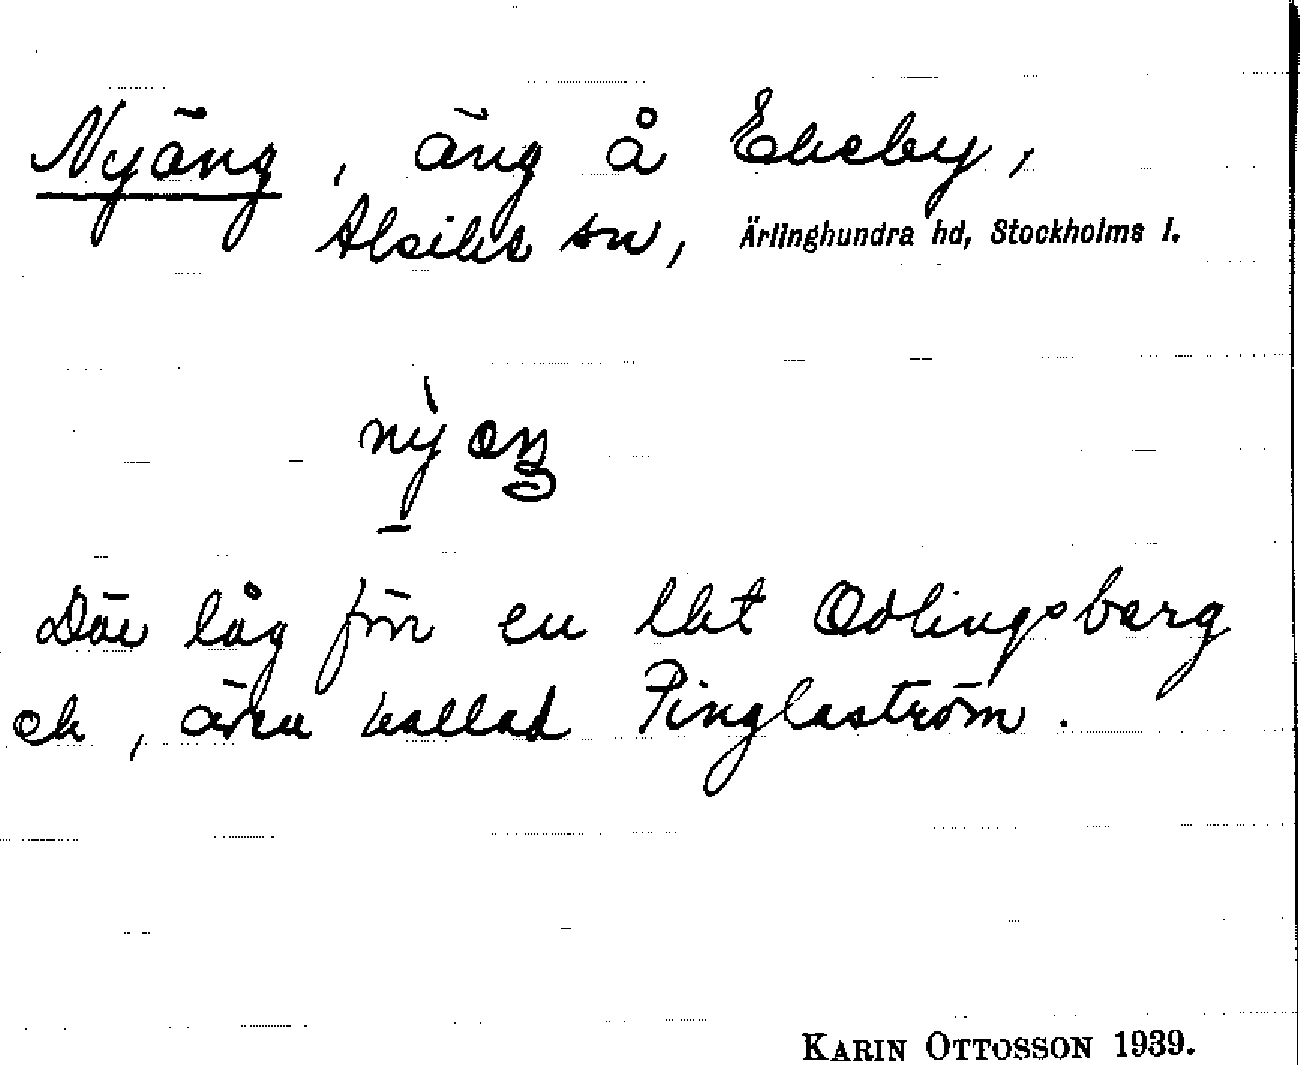 Nyäng, äng å Ekeby,
Alsike sn, Ärlinghundra hd, Stockholms l.
Där låg förr en lht Odlingsberg
ck, även kallad Pinglaström.
KARIN OTTOSSON 1939.